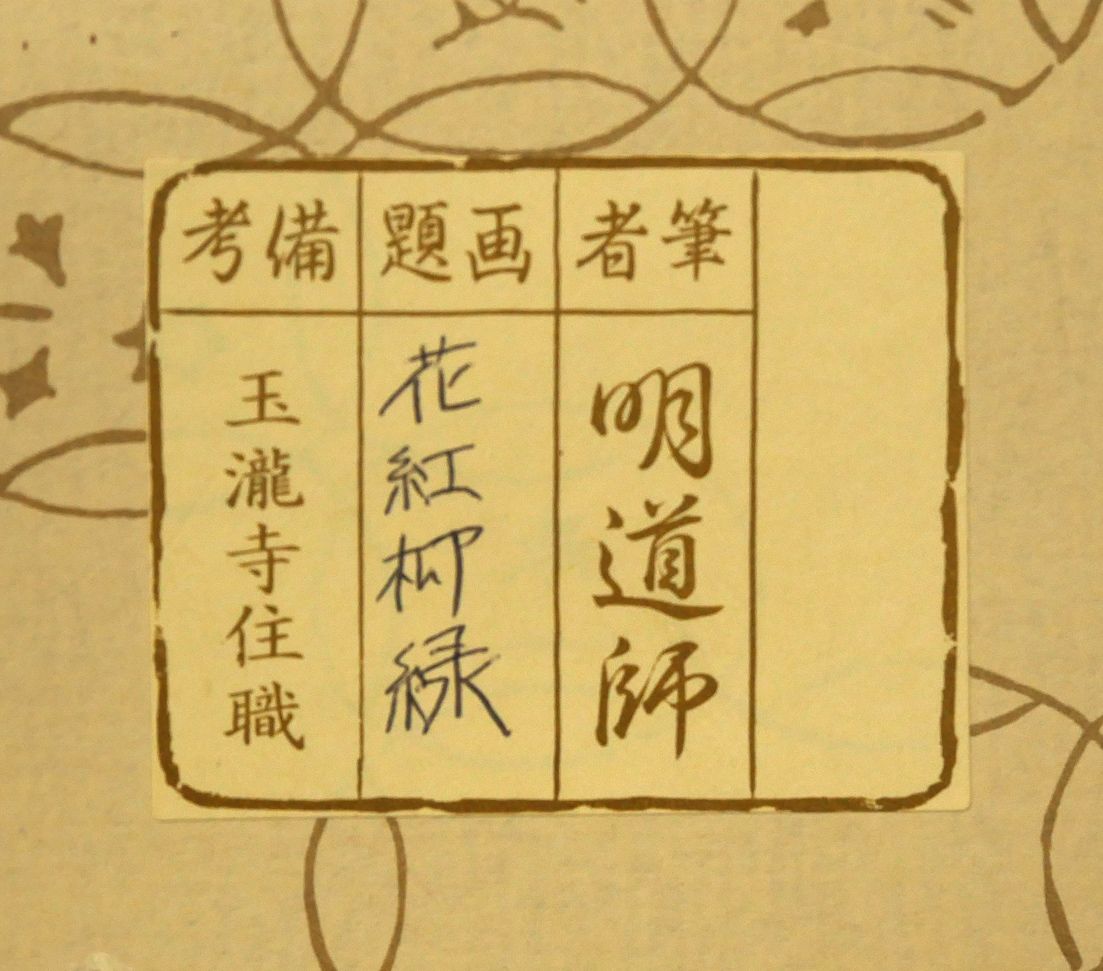 筆者
明道師
画題
花紅柳緑
備考
玉瀧寺住職